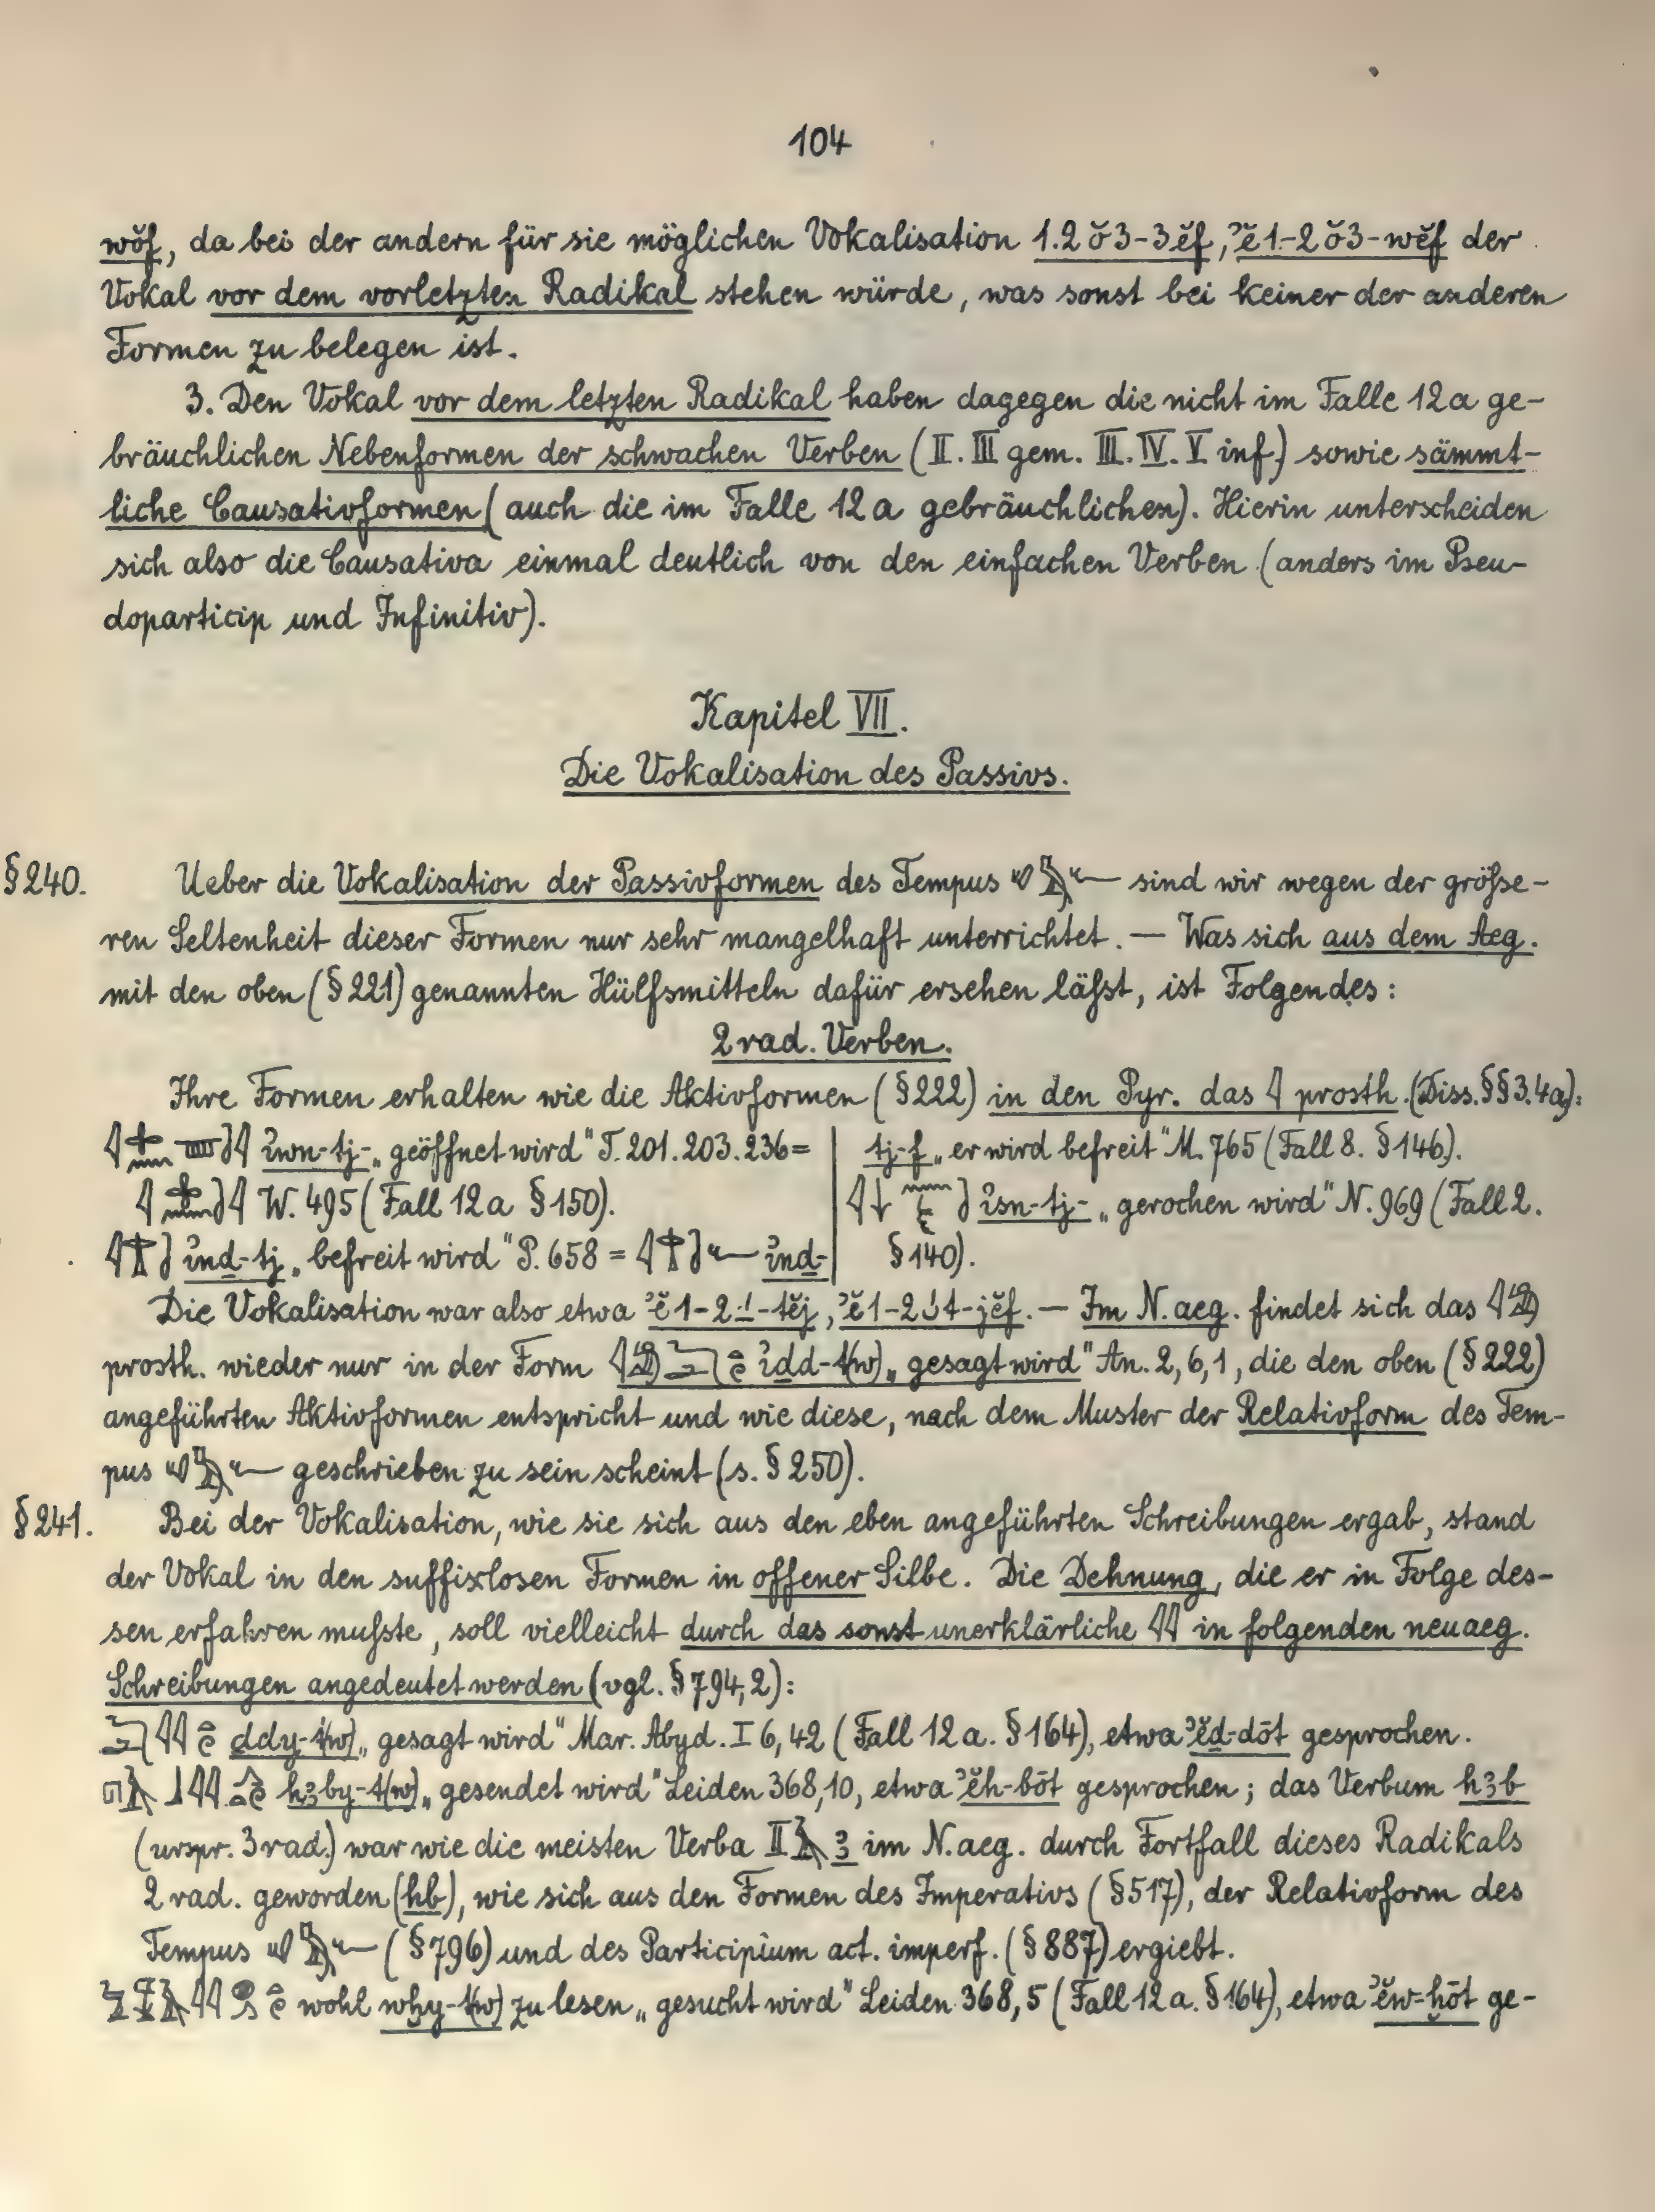 104
wŏf, da bei der andern für sie möglichen Vokalisation 1.2 ŏ 3-3 ĕf, ʾĕ 1-2 ŏ 3-wĕf der
Vokal vor dem vorletzten Radikal stehen würde, was sonst bei keiner der anderen
Formen zu belegen ist.
3. Den Vokal vor dem letzten Radikal haben dagegen die nicht im Falle 12a ge-
bräuchlichen Nebenformen der schwachen Verben (II. III gem. III. IV. V inf.) sowie sämmt-
liche Causativformen (auch die im Falle 12a gebräuchlichen). Hierin unterscheiden
sich also die Causativa einmal deutlich von den einfachen Verben (anders im Pseu-
doparticip und Infinitiv).
Kapitel VII.
Die Vokalisation des Passivs.
§ 240. Ueber die Vokalisation der Passivformen des Tempus sind wir wegen der größe-
ren Seltenheit dieser Formen nur sehr mangelhaft unterrichtet. — Was sich aus dem Aeg.
mit den oben (§ 221) genannten Hülfsmitteln dafür ersehen läßt, ist Folgendes:
2 rad. Verben.
Ihre Formen erhalten wie die Aktivformen (§ 222) in den Pyr. das 𓇋 prosth. (Diss. §§ 3. 4a):
ỉwn-tj- „geöffnet wird" T. 201. 203. 236 =
W. 495 (Fall 12a § 150).
ỉnḏ-tj „befreit wird" P. 658 = ỉnḏ-
tj-f „er wird befreit" M. 765 (Fall 8. § 146).
ỉsn-tj- „gerochen wird" N. 969 (Fall 2.
§ 140).
Die Vokalisation war also etwa ʾĕ 1-2 -́-tĕj, ʾĕ 1-2 -́ t-jĕf. — Im N.aeg. findet sich das
prosth. wieder nur in der Form ỉḏd-t(w) „gesagt wird" An. 2, 6, 1, die den oben (§ 222)
angeführten Aktivformen entspricht und wie diese, nach dem Muster der Relativform des Tem-
pus geschrieben zu sein scheint (s. § 250).
§ 241. Bei der Vokalisation, wie sie sich aus den eben angeführten Schreibungen ergab, stand
der Vokal in den suffixlosen Formen in offener Silbe. Die Dehnung, die er in Folge des-
sen erfahren mußte, soll vielleicht durch das sonst unerklärliche 𓇋𓇋 in folgenden neuaeg.
Schreibungen angedeutet werden (vgl. § 794, 2):
ḏdy-t(w) „gesagt wird" Mar. Abyd. I 6, 42 (Fall 12a. § 164), etwa ʾĕḏ-dōt gesprochen.
hꜣby-t(w) „gesendet wird" Leiden 368, 10, etwa ʾĕh-bōt gesprochen; das Verbum hꜣb
(urspr. 3 rad.) war wie die meisten Verba II ꜣ im N.aeg. durch Fortfall dieses Radikals
2 rad. geworden (hb), wie sich aus den Formen des Imperativs (§ 517), der Relativform des
Tempus (§ 796) und des Participium act. imperf. (§ 887) ergiebt.
wohl wḫy-t(w) zu lesen „gesucht wird" Leiden 368, 5 (Fall 12a. § 164), etwa ʾĕw-ḫōt ge-